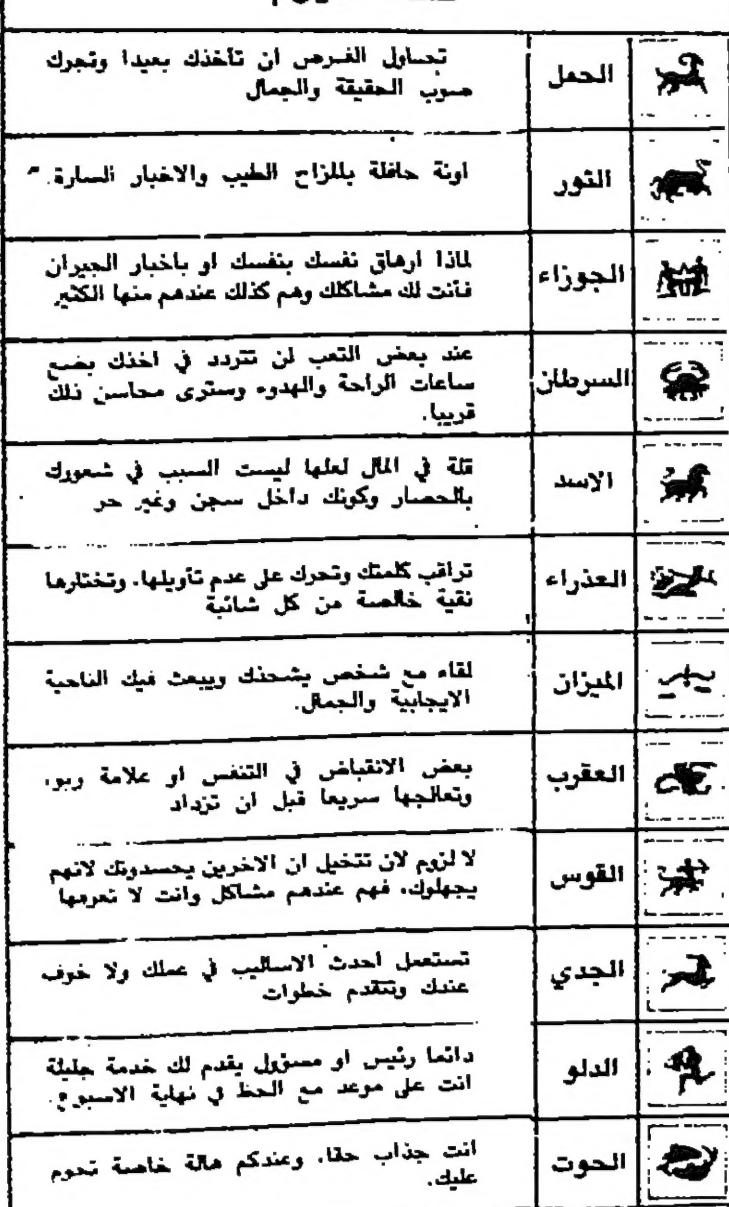 الحمل
تحاول الفرص ان تأخذك بعيدا وتجرك
صوب الحقيقة والجمال
الثور
اونة حافلة بالمزاح الطيب والاخبار السارة.
الجوزاء
لماذا ارهاق نفسك بنفسك او باخبار الجيران
فأنت لك مشاكلك وهم كذلك عندهم منها الكثير
السرطان
عند بعض التعب لن تتردد في اخذك بضع
ساعات الراحة والهدوء وسترى محاسن ذلك
قريبا.
الاسد
قلة في المال لعلها ليست السبب في شعورك
بالحصار وكونك داخل سجن وغير حر
العذراء
تراقب كلمتك وتحرك على عدم تأويلها، وتختارها
نقية خالصة من كل شائبة
الميزان
لقاء مع شخص يشحذك ويبعث فيك الناحية
الايجابية والجمال.
العقرب
بعض الانقباض في التنفس او علامة ربو،
وتعالجها سريعا قبل ان تزداد
القوس
لا لزوم لان تتخيل ان الاخرين يحسدونك لانهم
يجهلوك، فهم عندهم مشاكل وانت لا تعرفها
الجدي
تستعمل احدث الاساليب في عملك ولا خوف
عندك وتتقدم خطوات
الدلو
دائما رئيس او مسؤول يقدم لك خدمة جليلة
انت على موعد مع الحظ في نهاية الاسبوع.
الحوت
انت جذاب حقا، وعندكم هالة خاصة تحوم
عليك.